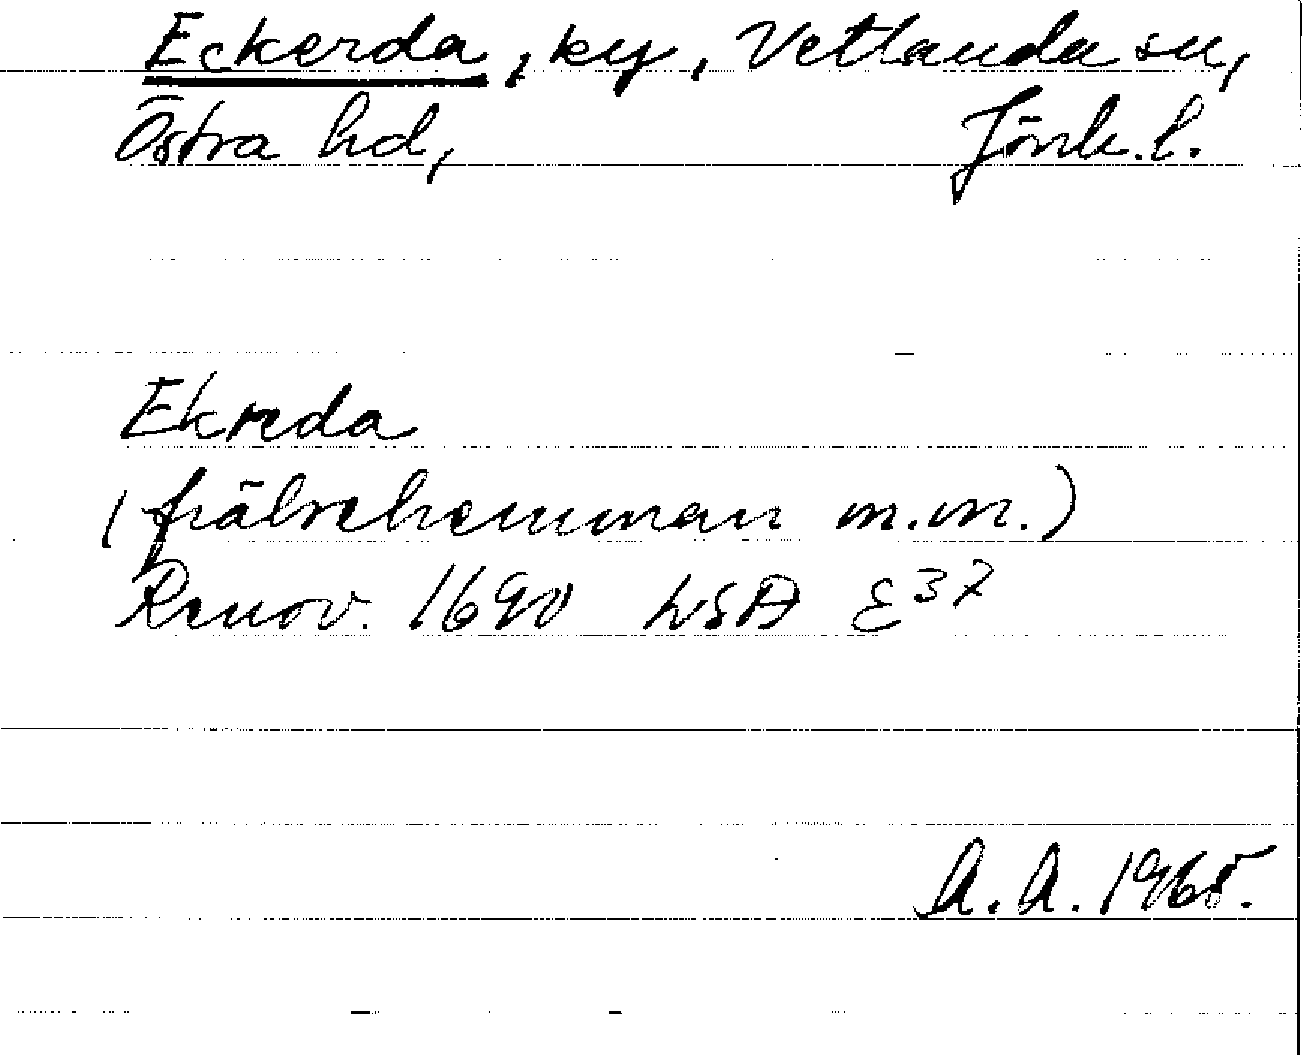 Eckerda, by, Vetlanda sn,
Östra hd, Jönk. l.
Ekreda
(frälsehemman m.m.)
Renov. 1690 LSA E 37
A. A. 1965.